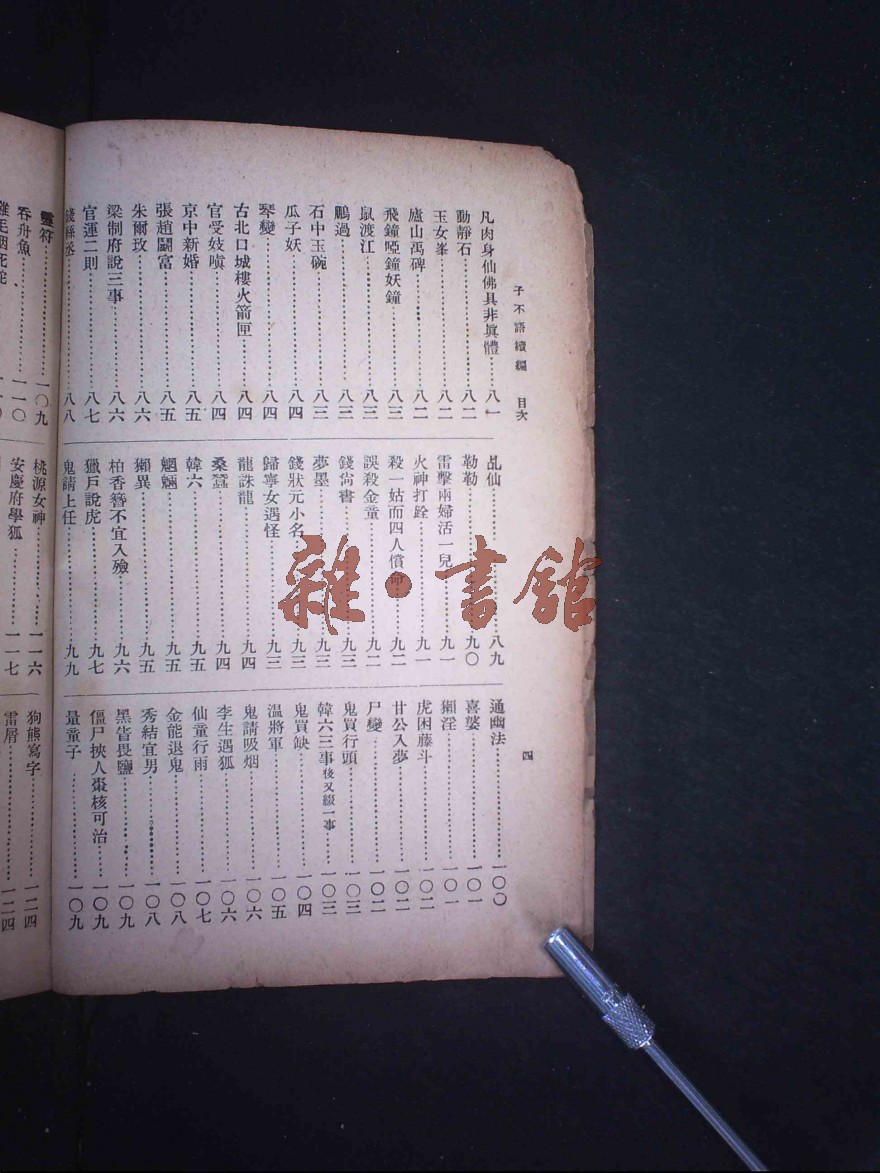 子不語續編　目次
四
凡肉身仙佛具非眞體……八一
動靜石……八二
玉女峯……八二
廬山禹碑……八二
飛鐘啞鐘妖鐘……八三
鼠渡江……八三
鵬過……八三
石中玉碗……八三
瓜子妖……八四
琴變……八四
古北口城樓火箭匣……八四
官受妓嗔……八四
京中新婚……八五
張趙鬭富……八五
朱爾玫……八六
梁制府說三事……八六
官運二則……八七
錢縣丞……八八
乩仙……八九
勒勒……九〇
雷擊兩婦活一兒……九一
火神打銓……九一
殺一姑而四人償命……九二
誤殺金童……九二
錢尙書……九三
夢墨……九三
錢狀元小名……九三
歸寧女遇怪……九三
龍誅龍……九四
桑蠶……九四
韓六……九五
魍魎……九五
獺異……九五
柏香簪不宜入殮……九六
獵戶說虎……九七
鬼請上任……九九
通幽法……一〇〇
喜婆……一〇一
獺淫……一〇一
虎困藤斗……一〇二
甘公入夢……一〇二
尸變……一〇二
鬼買行頭……一〇三
韓六三事後又綴一事……一〇三
鬼買缺……一〇四
溫將軍……一〇五
鬼請吸烟……一〇六
李生遇狐……一〇六
仙童行雨……一〇七
金能退鬼……一〇八
秀結宜男……一〇八
黑眚畏鹽……一〇九
僵尸挾人棗核可治……一〇九
暈童子……一〇九
靈符……一〇九
吞舟魚……一一〇
桃源女神……一一六
安慶府學狐……一一七
狗熊寫字……一二四
雷屑……一二四
雜·書館